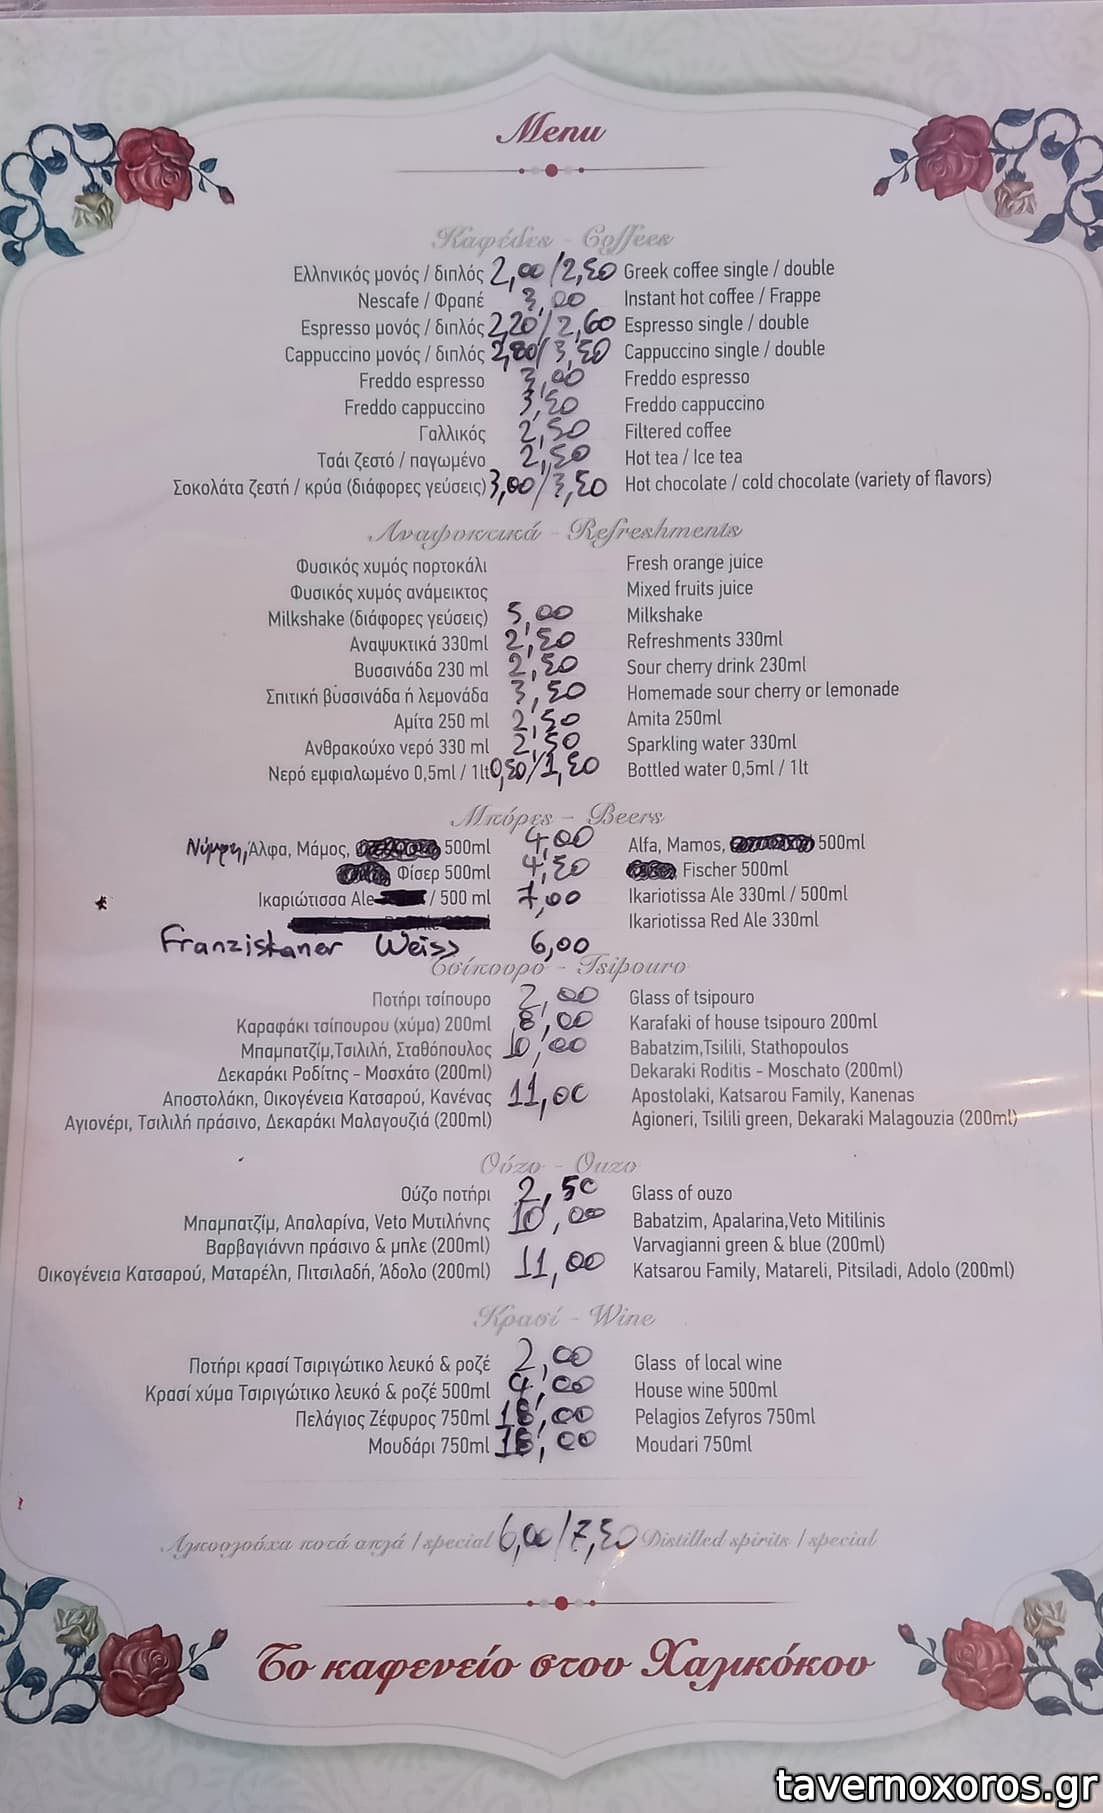 Menu
Καφέδες - Coffees
Ελληνικός μονός / διπλός 2,00/2,50 Greek coffee single / double
Nescafe / Φραπέ 3,00 Instant hot coffee / Frappe
Espresso μονός / διπλός 2,20/2,60 Espresso single / double
Cappuccino μονός / διπλός 2,80/3,50 Cappuccino single / double
Freddo espresso 3,00 Freddo espresso
Freddo cappuccino 3,50 Freddo cappuccino
Γαλλικός 2,50 Filtered coffee
Τσάι ζεστό / παγωμένο 2,50 Hot tea / Ice tea
Σοκολάτα ζεστή / κρύα (διάφορες γεύσεις) 3,00/3,50 Hot chocolate / cold chocolate (variety of flavors)
Αναψυκτικά - Refreshments
Φυσικός χυμός πορτοκάλι Fresh orange juice
Φυσικός χυμός ανάμεικτος Mixed fruits juice
Milkshake (διάφορες γεύσεις) 5,00 Milkshake
Αναψυκτικά 330ml 2,50 Refreshments 330ml
Βυσσινάδα 230 ml 2,50 Sour cherry drink 230ml
Σπιτική βυσσινάδα ή λεμονάδα 3,50 Homemade sour cherry or lemonade
Αμίτα 250 ml 2,50 Amita 250ml
Ανθρακούχο νερό 330 ml 2,50 Sparkling water 330ml
Νερό εμφιαλωμένο 0,5ml / 1lt 0,50/1,50 Bottled water 0,5ml / 1lt
Μπύρες - Beers
Νύμφη, Άλφα, Μάμος, 500ml 4,00 Alfa, Mamos, 500ml
Φίσερ 500ml 4,50 Fischer 500ml
Ικαριώτισσα Ale / 500 ml 7,00 Ikariotissa Ale 330ml / 500ml
Ikariotissa Red Ale 330ml
Franziskaner Weiss 6,00
Τσίπουρο - Tsipouro
Ποτήρι τσίπουρο 2,00 Glass of tsipouro
Καραφάκι τσίπουρου (χύμα) 200ml 8,00 Karafaki of house tsipouro 200ml
Μπαμπατζίμ,Τσιλιλή, Σταθόπουλος 10,00 Babatzim,Tsilili, Stathopoulos
Δεκαράκι Ροδίτης - Μοσχάτο (200ml) Dekaraki Roditis - Moschato (200ml)
Αποστολάκη, Οικογένεια Κατσαρού, Κανένας 11,00 Apostolaki, Katsarou Family, Kanenas
Αγιονέρι, Τσιλιλή πράσινο, Δεκαράκι Μαλαγουζιά (200ml) Agioneri, Tsilili green, Dekaraki Malagouzia (200ml)
Ούζο - Ouzo
Ούζο ποτήρι 2,50 Glass of ouzo
Μπαμπατζίμ, Απαλαρίνα, Veto Μυτιλήνης 10,00 Babatzim, Apalarina,Veto Mitilinis
Βαρβαγιάννη πράσινο & μπλε (200ml) Varvagianni green & blue (200ml)
Οικογένεια Κατσαρού, Ματαρέλη, Πιτσιλαδή, Άδολο (200ml) 11,00 Katsarou Family, Matareli, Pitsiladi, Adolo (200ml)
Κρασί - Wine
Ποτήρι κρασί Τσιριγώτικο λευκό & ροζέ 2,00 Glass of local wine
Κρασί χύμα Τσιριγώτικο λευκό & ροζέ 500ml 4,00 House wine 500ml
Πελάγιος Ζέφυρος 750ml 18,00 Pelagios Zefyros 750ml
Μουδάρι 750ml 18,00 Moudari 750ml
Αλκοολούχα ποτά απλά / special 6,00/7,50 Distilled spirits / special
Το καφενείο στου Χαλικόκου
tavernoxoros.gr